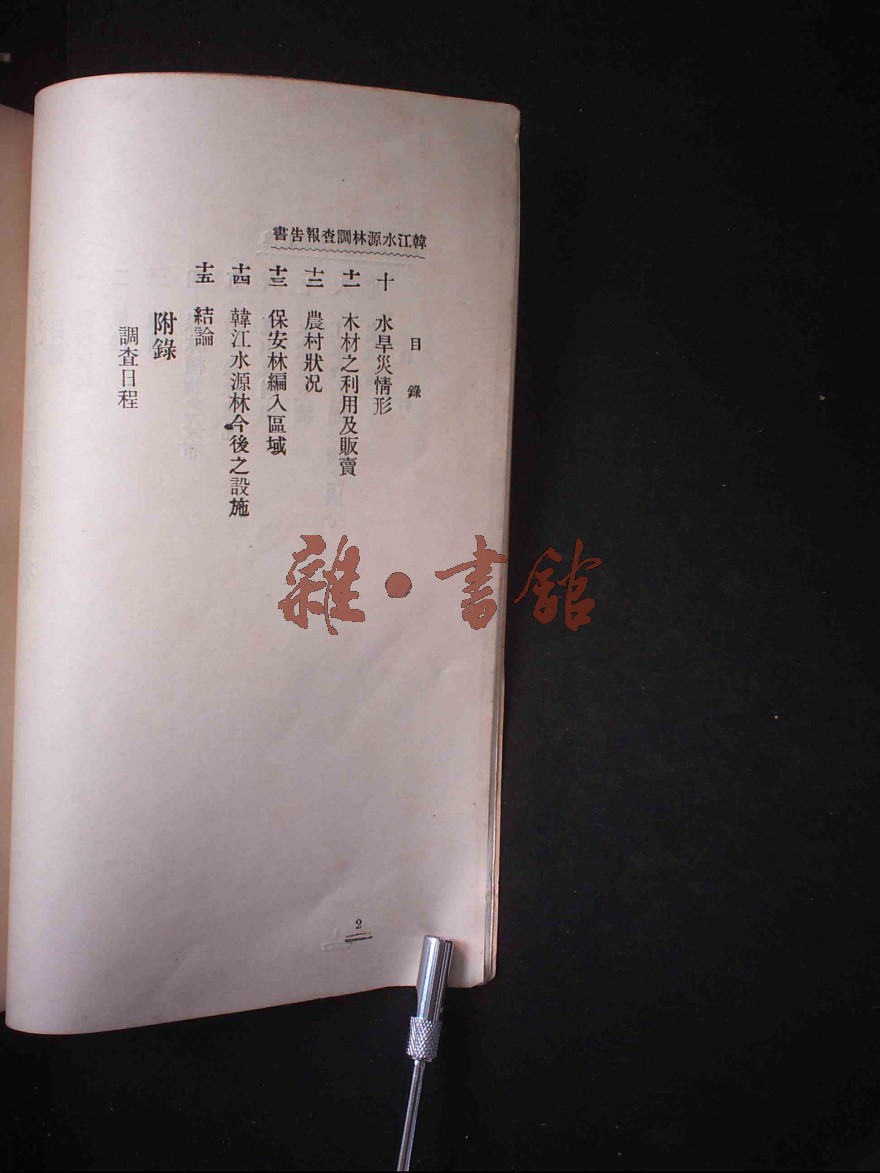 書告報查調林源水江韓
目錄
十 水旱災情形
十一 木材之利用及販賣
十二 農村狀况
十三 保安林編入區域
十四 韓江水源林今後之設施
十五 結論
附錄
調查日程
2
雜·書館